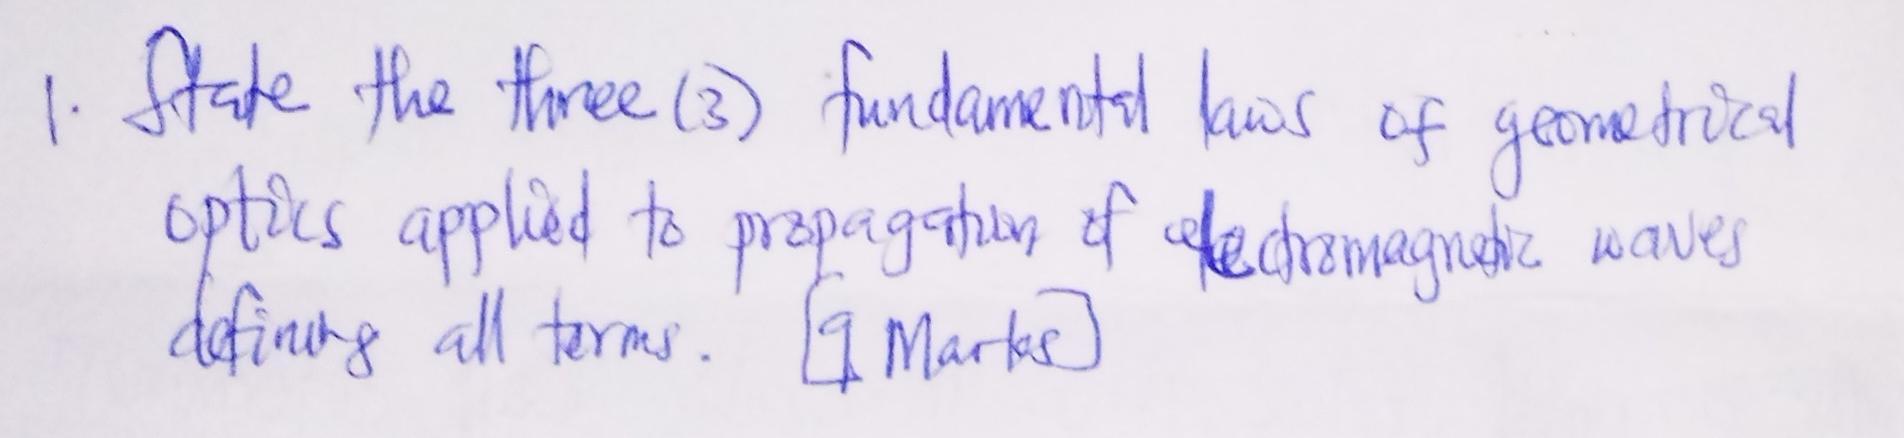 1. State the three (3) fundamental laws of geometrical
optics applied to propagation of electromagnetic waves
defining all terms. [9 Marks]